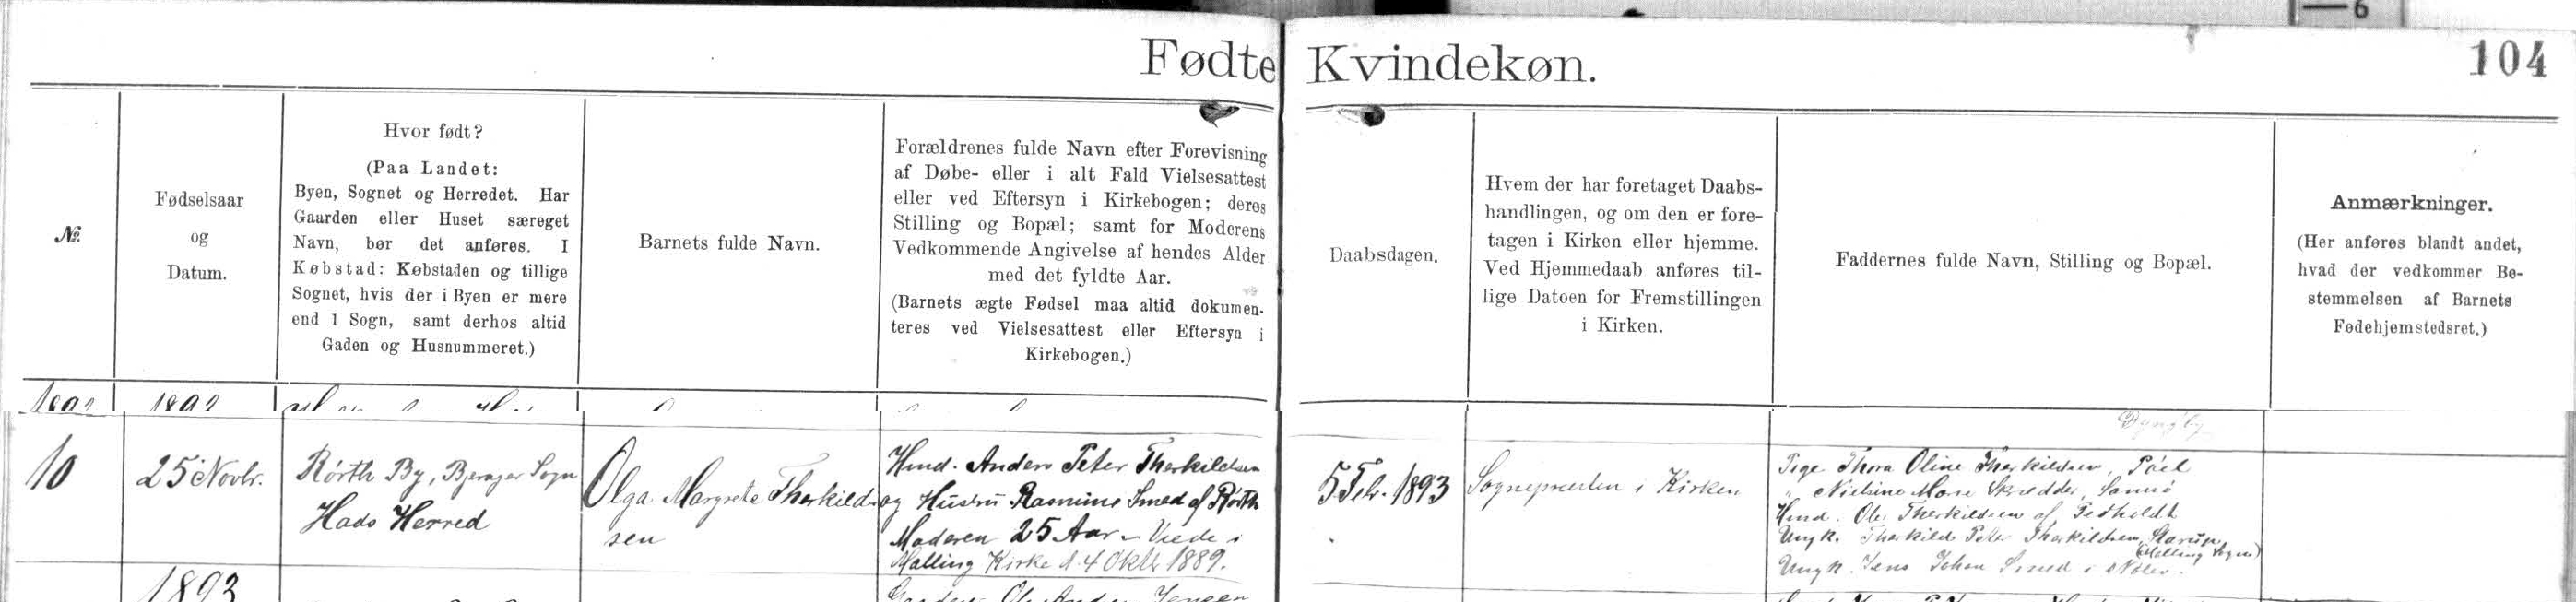 6
Fødte Kvindekøn.
104
№.
Fødselsaar
og
Datum.
Hvor født?
(Paa Landet:
Byen, Sognet og Herredet. Har
Gaarden eller Huset særeget
Navn, bør det anføres. I
Købstad: Købstaden og tillige
Sognet, hvis der i Byen er mere
end 1 Sogn, samt derhos altid
Gaden og Husnummeret.)
Barnets fulde Navn.
Forældrenes fulde Navn efter Forevisning
af Døbe- eller i alt Fald Vielsesattest
eller ved Eftersyn i Kirkebogen; deres
Stilling og Bopæl; samt for Moderens
Vedkommende Angivelse af hendes Alder
med det fyldte Aar.
(Barnets ægte Fødsel maa altid dokumen-
teres ved Vielsesattest eller Eftersyn i
Kirkebogen.)
Daabsdagen.
Hvem der har foretaget Daabs-
handlingen, og om den er fore-
tagen i Kirken eller hjemme.
Ved Hjemmedaab anføres til-
lige Datoen for Fremstillingen
i Kirken.
Faddernes fulde Navn, Stilling og Bopæl.
Anmærkninger.
(Her anføres blandt andet,
hvad der vedkommer Be-
stemmelsen af Barnets
Fødehjemstedsret.)
10
25 Novbr.
Rörth By, Bjerager Sogn
Hads Herred
Olga Margrete Therkild-
sen
Hmd. Anders Peter Therkildsen
og Hustru Rasmine Smed af Rörth
Moderen 25 Aar - Viede i
Malling Kirke d. 4 Oktb 1889.
5 Febr. 1893
Sognepræsten i Kirken
Dyngby
Pige Thora Oline Therkildsen,
" Nielsine Skrædder,
Hmd. Ole Therkildsen af Pedholdt
Ungk. Therkild Peter Therkildsen, Starup
(Malling Sogn)
Ungk. Jens Johan Smed i Nölev.
1893